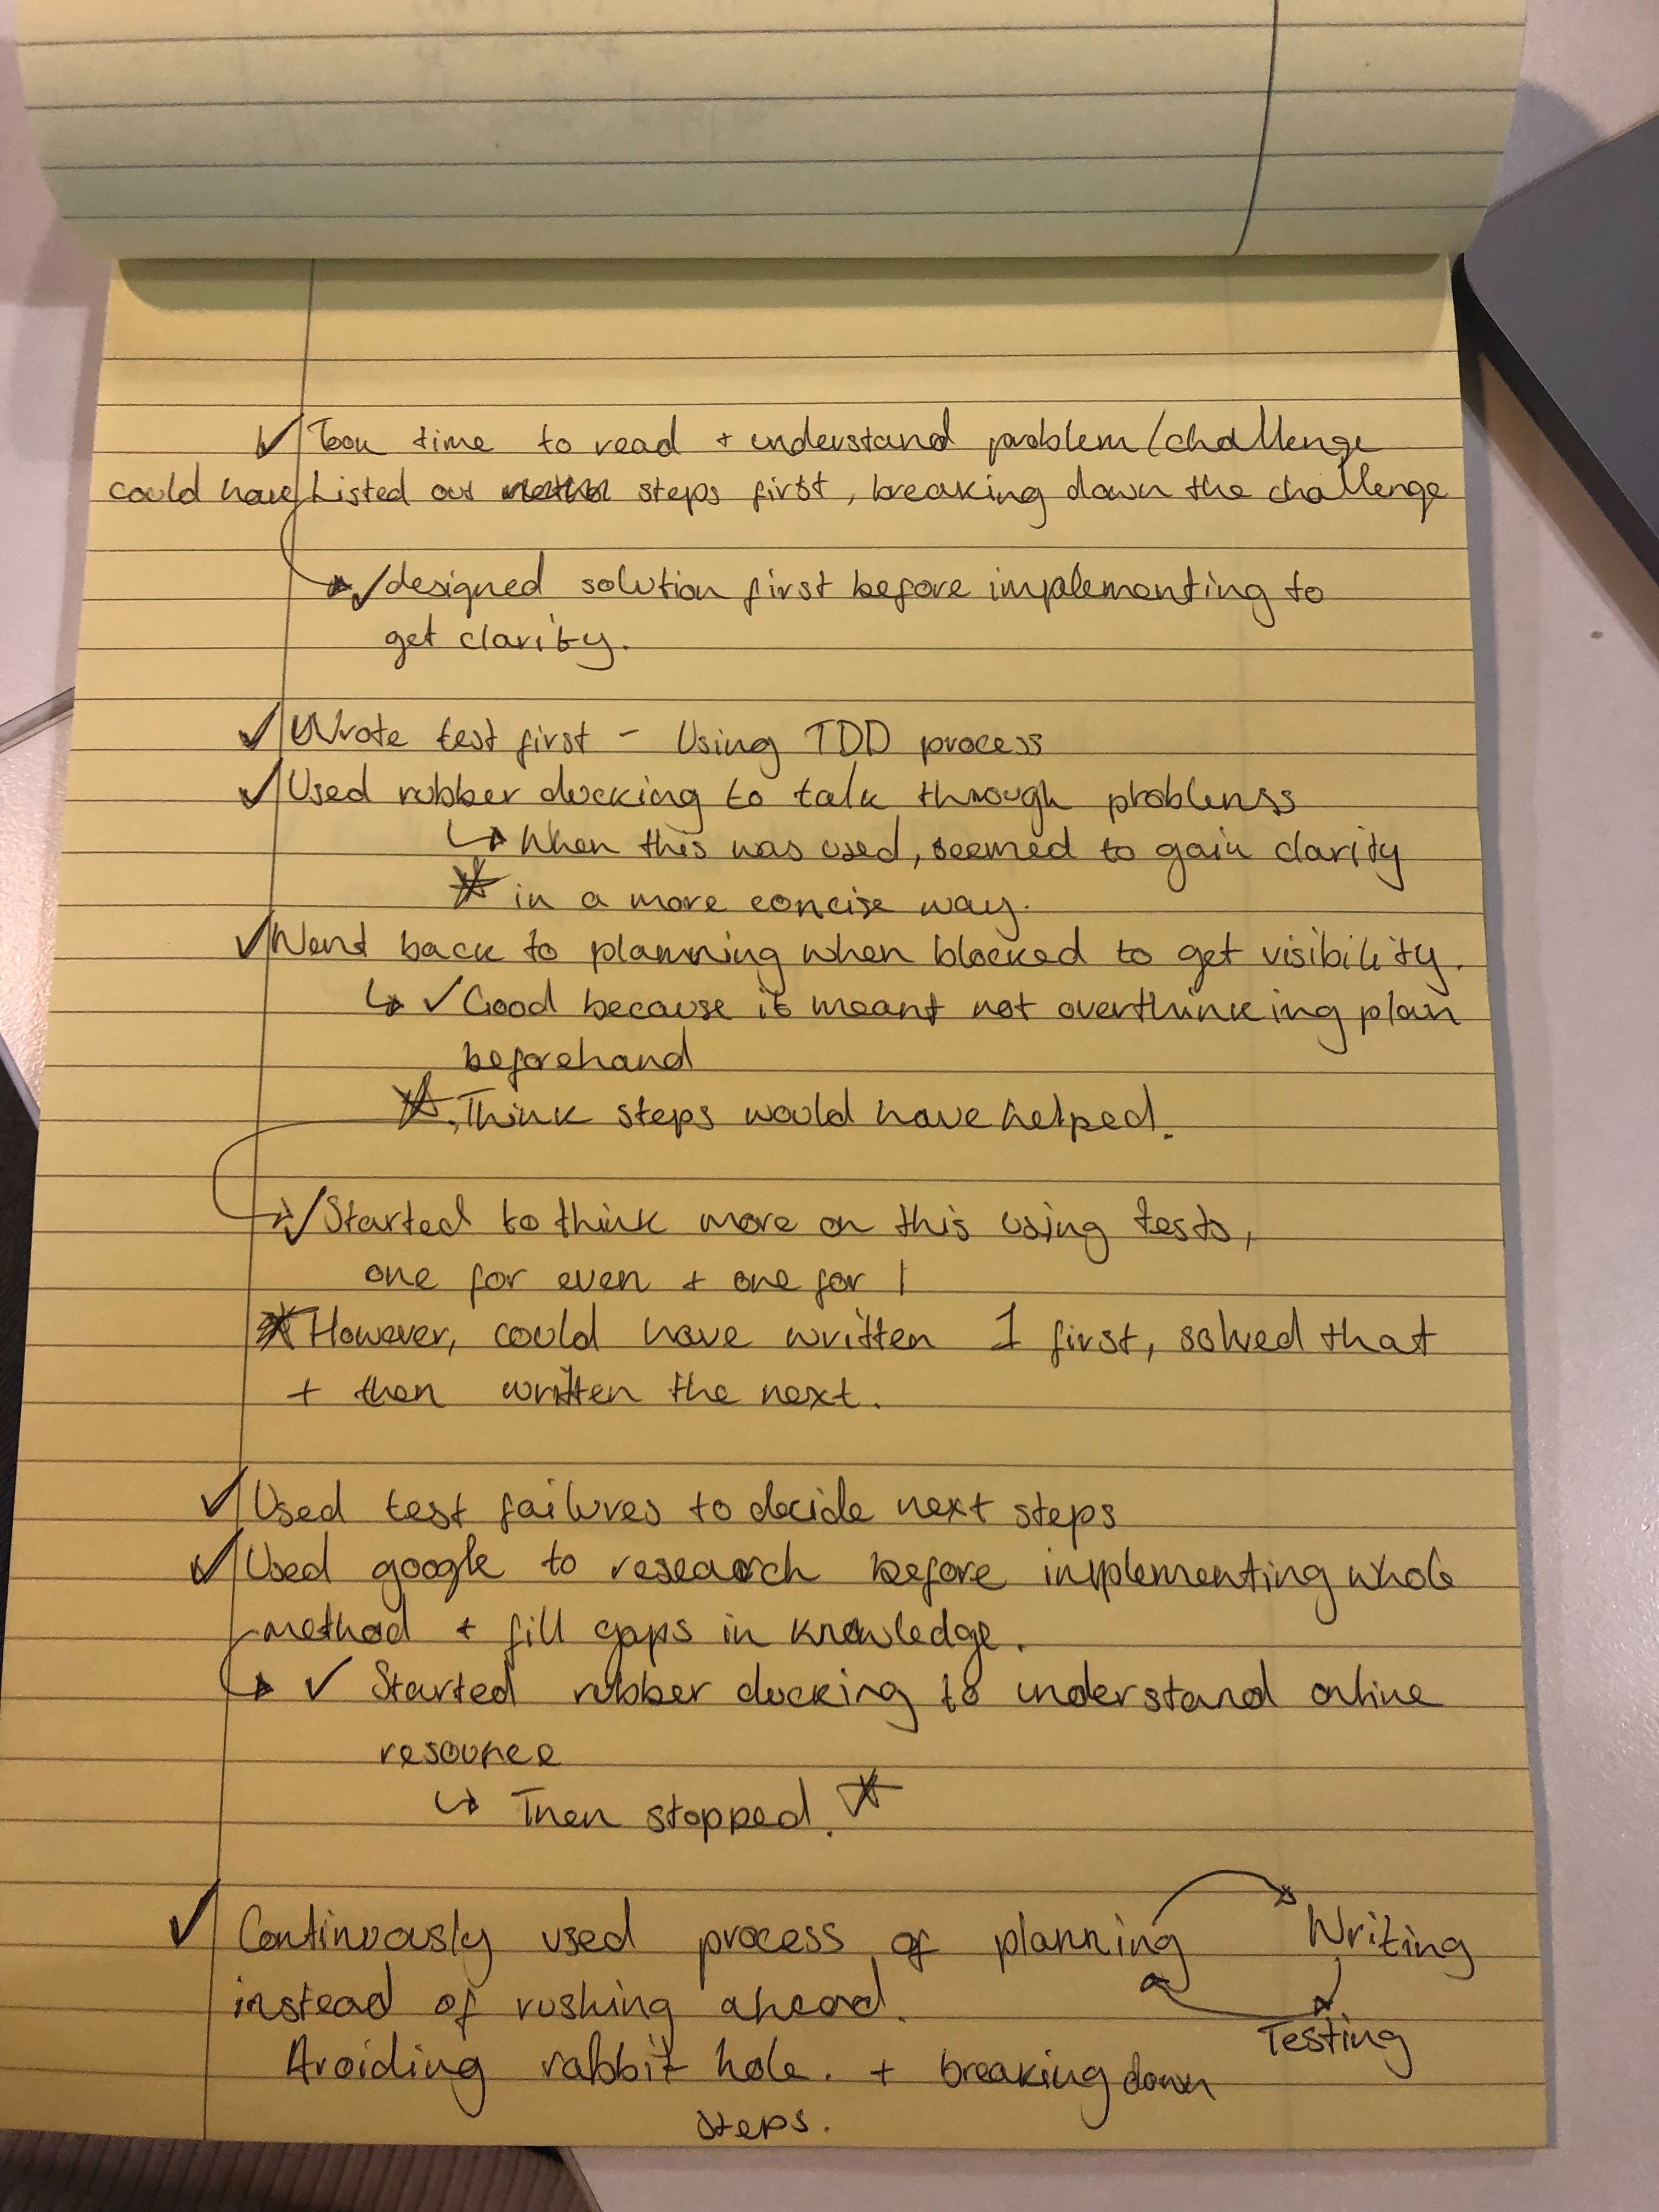 ✓ Took time to read + understand problem/challenge
could have Listed out steps first, breaking down the challenge
→ ✓ designed solution first before implementing to
get clarity.
✓ Wrote test first - Using TDD process
✓ Used rubber ducking to talk through problems
↳ When this was used, seemed to gain clarity
☆ in a more concise way.
✓ Went back to planning when blocked to get visibility.
↳ ✓ Good because it meant not overthinking plan
beforehand
☆ Think steps would have helped.
→ ✓ Started to think more on this using tests,
one for even + one for 1
☆ However, could have written 1 first, solved that
+ then written the next.
✓ Used test failures to decide next steps
✓ Used google to research before implementing whole
method + fill gaps in knowledge.
→ ✓ Started rubber ducking to understand online
resource
↳ Then stopped. ☆
✓ Continuously used process of planning → Writing
instead of rushing ahead.
Testing
Avoiding rabbit hole. + breaking down
steps.